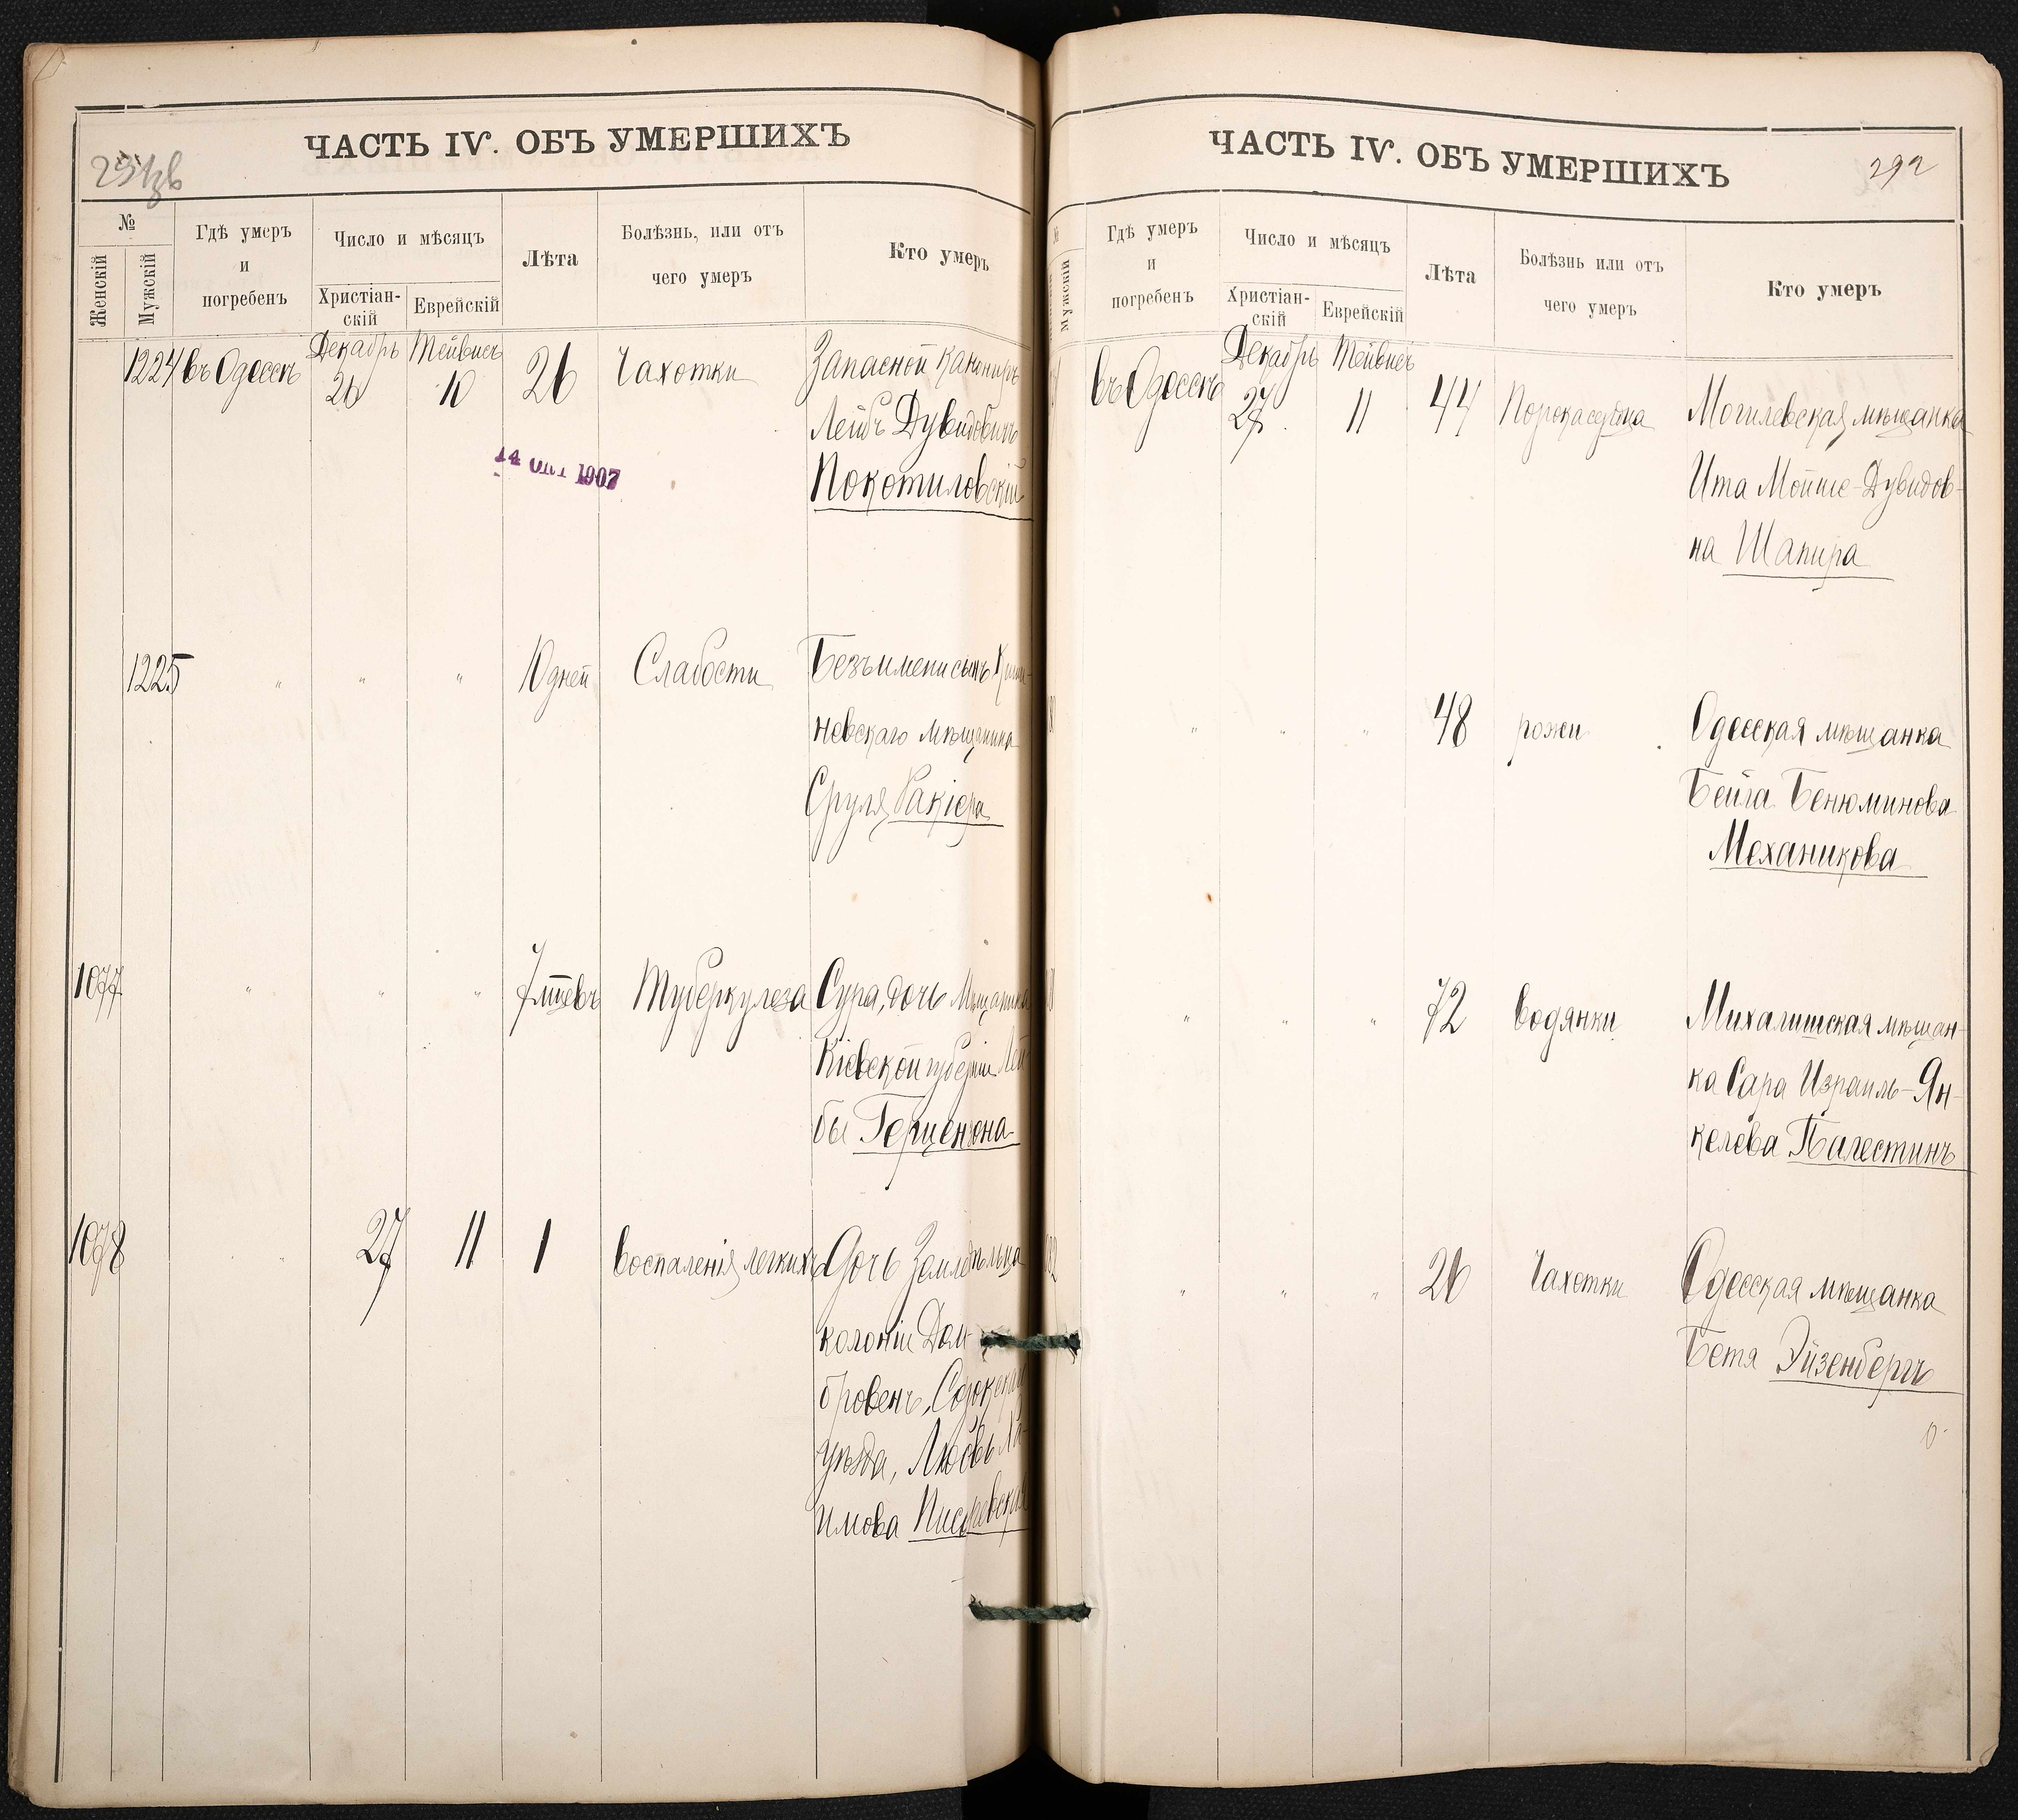 ЧАСТЬ IV. ОБЪ УМЕРШИХЪ
№
Женскій
Мужскій
Гдѣ умеръ
и
погребенъ
Число и мѣсяцъ
Христіан-
скій
Еврейскій
Лѣта
Болѣзнь, или отъ
чего умеръ
Кто умеръ
1224 въ Одессѣ Декабрь 26 Тейвисъ 10 26 Чахотки Запасной канониръ
Лейбъ Дувидовичъ
Покотиловскій
14 ОКТ 1907
1225 " " " 10 дней Слабости Безъ имени сынъ Киши-
невскаго мѣщанина
Сруля Ракіера
1077 " " " 7 мцевъ Туберкулеза Сура, дочь мѣщанина
Кіевской губерніи Лей-
бы Герцензона
1078 " " 27 11 1 Воспаленія легкихъ Дочь Земледѣльца
колоніи Дом-
бровенъ, Сорокскаго
уѣзда, Любовь Ха-
имова
ЧАСТЬ IV. ОБЪ УМЕРШИХЪ
292
Мужской
Гдѣ умеръ
и
погребенъ
Число и мѣсяцъ
Христіан-
скій
Еврейскій
Лѣта
Болѣзнь или отъ
чего умеръ
Кто умеръ
въ Одессѣ Декабрь 27 Тейвисъ 11 44 Порока сердца Могилевская мѣщанка
Ита Мойше-Дувидов-
на Шапира
" " " 48 рожи Одесская мѣщанка
Бейга Бенюминова
Механикова
" " " 72 Водянки Михалишская мѣщан-
ка Сара Израиль-Ян-
келева Палестинъ
" " " 26 Чахотки Одесская мѣщанка
Бетя Эйзенбергъ